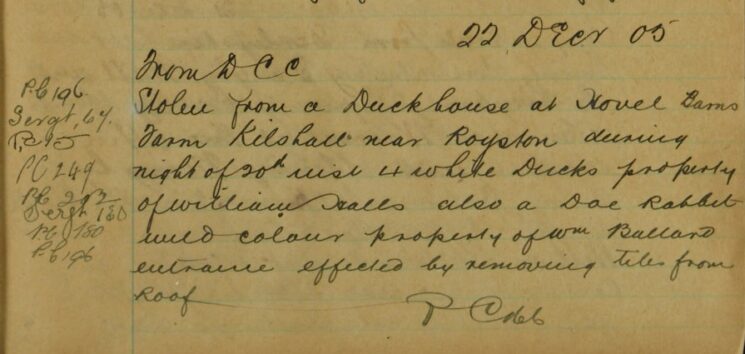 22 Decr 05
From D C C
Stolen from a Duckhouse at Hovel Barns
Farm Kilshall near Royston during
night of 20th inst 4 white Ducks property
of William Halls also a Doe Rabbit
wild colour property of Wm Ballard
entrance effected by removing tiles from
roof
P.C 196
Sergt, 67.
P.C 15
PC 249
P.C 292
Sergt 180
P.C 180
P.C 196